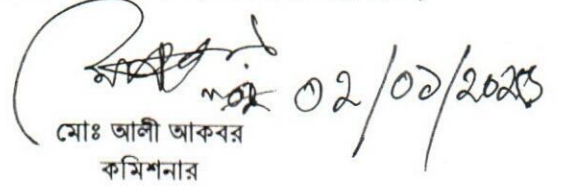 ০২/০১/২০২৩
মোঃ আলী আকবর
কমিশনার